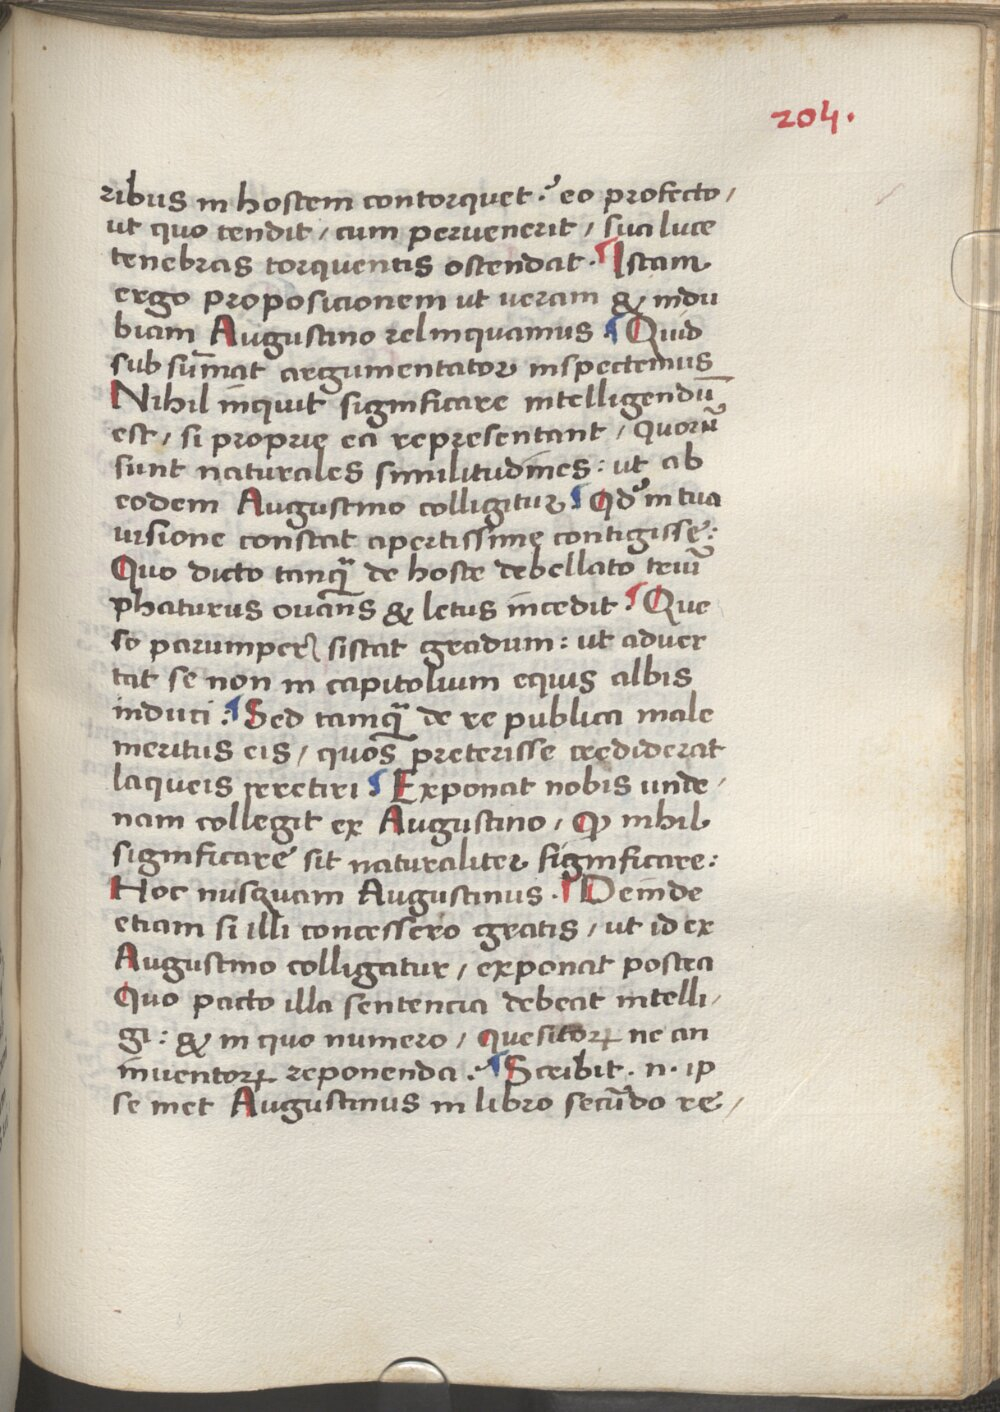 204.
ribus in hostem contorquet : eo profecto /
ut quo tendit / cum peruenerit / sua luce
tenebras torquentis ostendat . ¶ Istam
ergo proposicionem ut ueram & indu
biam Augustino relinquamus ¶ Quid
sub sum̄at argumentator inspectemus
Nihil inquit significare intelligendū
est / si proprię ea representant / quorū
sunt naturales similitudines : ut ab
eodem Augustino colligitur ¶ Qd in tua
uisione constat apertissimę contigisse :
Quo dicto tanq̄ de hoste debellato trium̄
phaturus ouans & letus incedit ¶ Que
so parumper sistat gradum : ut aduer
tat se non in capitolium equis albis
induci : ¶ Sed tamq̄ de re publica male
meritus eis / quos preterisse crediderat
laqueis irretiri ¶ Exponat nobis unde /
nam collegit ex Augustino / Qp nihil
significare sit naturaliter significare :
Hoc nusquam Augustinus . ¶ Deinde
etiam si illi concessero gratis / ut id ex
Augustino colligatur / exponat postea
Quo pacto illa sentencia debeat intelli /
gi : & in quo numero / quesitorꝝ ne an
inuentorꝝ reponenda : ¶ Scribit . n . ip
se met Augustinus in libro secūdo re /